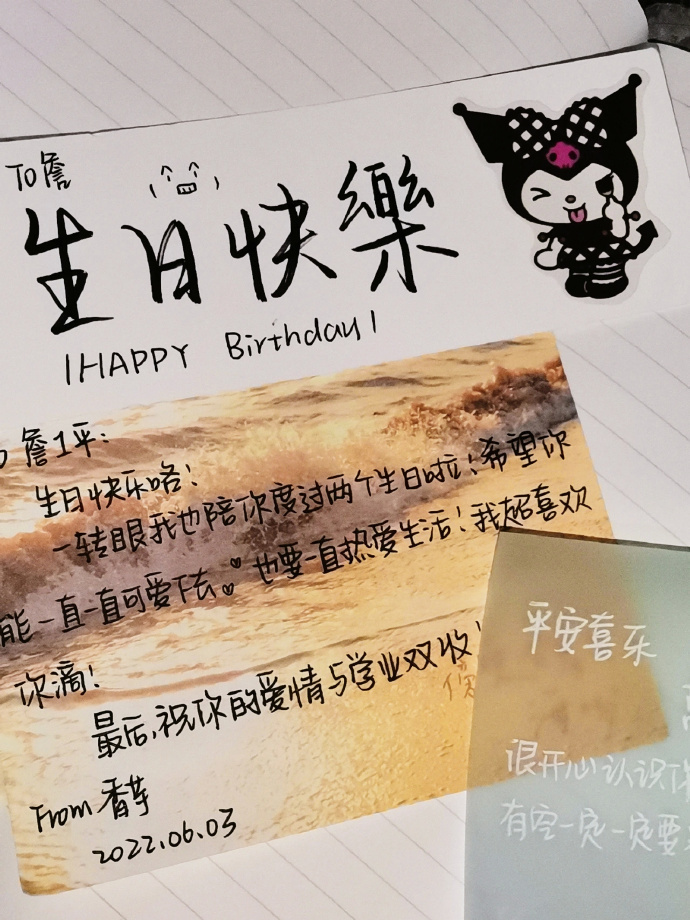 To詹
生日快樂
HAPPY Birthday
詹1平:
生日快乐咯!
一转眼我也陪你度过两个生日啦!希望你
能一直一直可爱下去。也要一直热爱生活!我超喜欢
你滴!
最后,祝你的爱情与学业双收!
From 香芋
2022.06.03
平安喜乐
很开心认识你
有空一定一定要